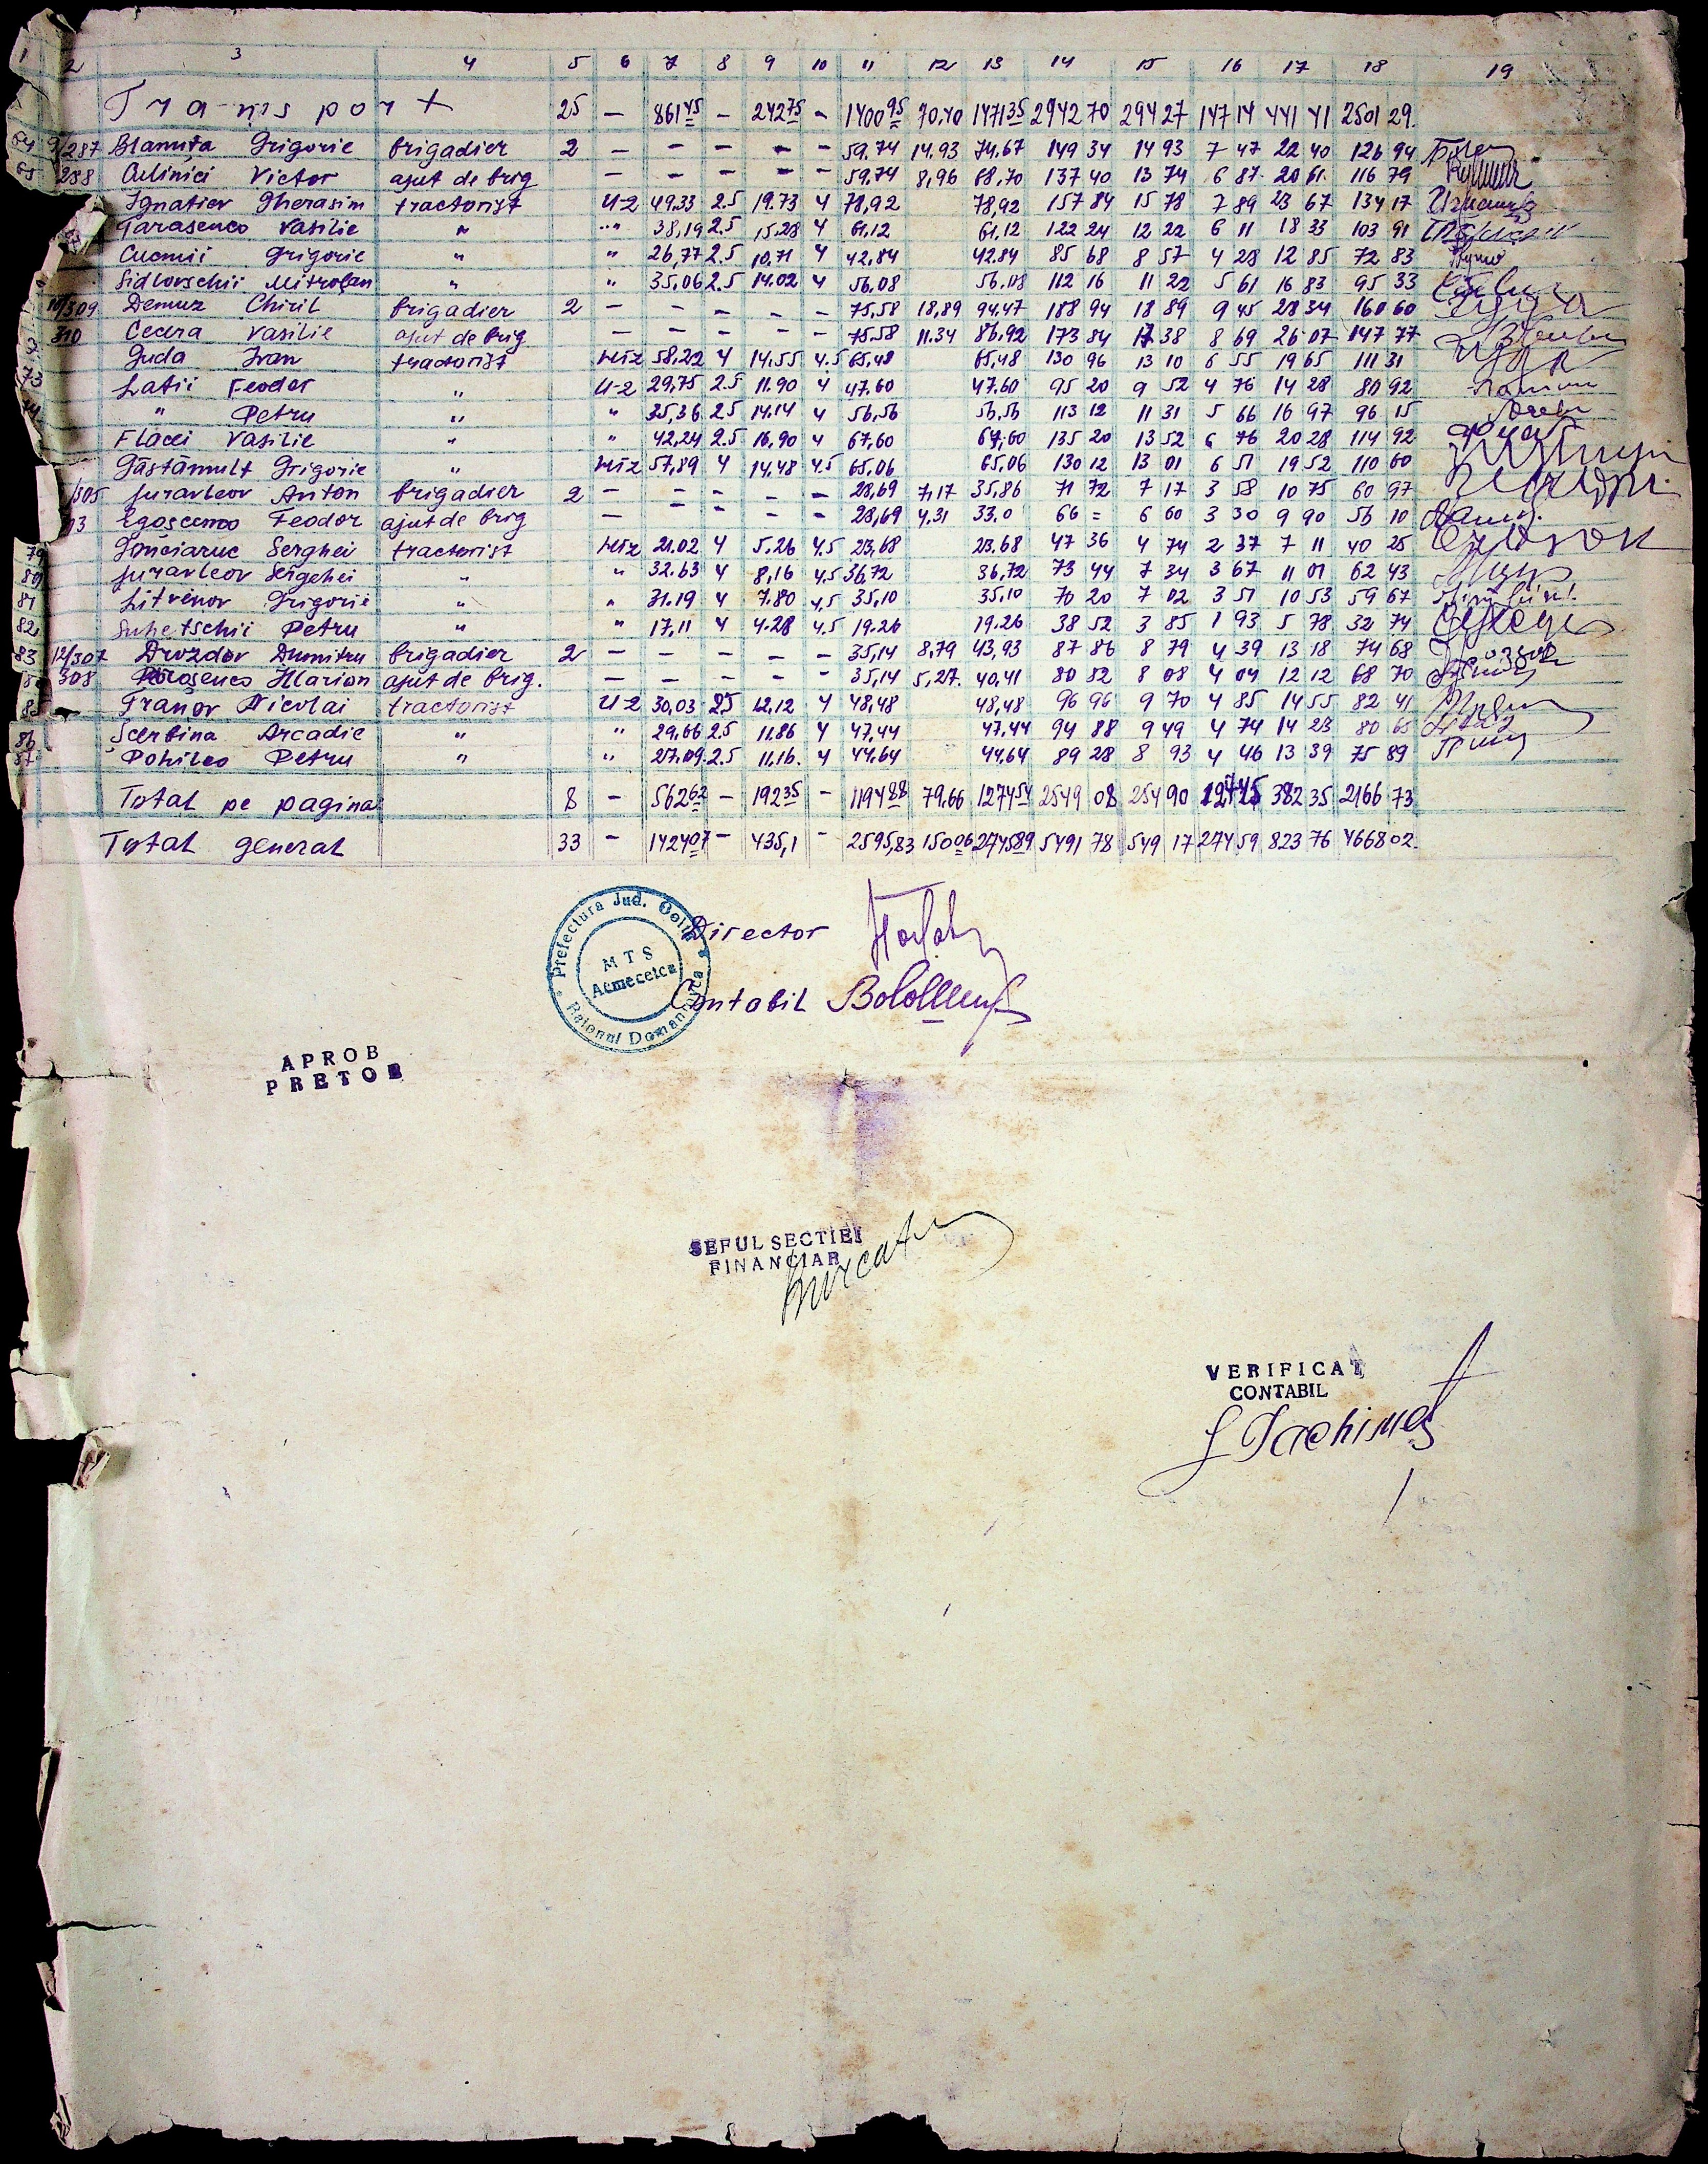 1 2 3 4 5 6 7 8 9 10 11 12 13 14 15 16 17 18 19
Transport 25 — 861 45 — 242 75 — 1400 95 70,40 1471 35 2942 70 294 27 147 14 441 41 2501 29
64 9/287 Blamuța Grigorie brigadier 2 — — — — — 59.74 14.93 74.67 149 34 14 93 7 47 22 40 126 94
65 288 Culinici Victor ajut de brig — — — — — 59,74 8,96 68,70 137 40 13 74 6 87 20 61 116 79
Ignatiev Gherasim tractorist U-2 49,33 2.5 19.73 4 78,92 78,92 157 84 15 78 7 89 23 67 134 17
Tarasenco Vasilie " " 38,19 2.5 15,28 4 61,12 61,12 122 24 12 22 6 11 18 33 103 91
Cucmii Grigorie " " 26,77 2.5 10.71 4 42,84 42.84 85 68 8 57 4 28 12 85 72 83
Sidlovschii Mitrofan " " 35,06 2.5 14.02 4 56,08 56,08 112 16 11 22 5 61 16 83 95 33
11/309 Demuz Chiril brigadier 2 — — — — — 75,58 18,89 94,47 188 94 18 89 9 45 28 34 160 60
310 Cecera Vasilie ajut de brig — — — — — 75.58 11.34 86,92 173 84 17 38 8 69 26 07 147 77
Guda Ivan tractorist HTZ 58,22 4 14,55 4.5 65,48 65,48 130 96 13 10 6 55 19 65 111 31
73 Latii Feodor " U-2 29,75 2.5 11.90 4 47,60 47,60 95 20 9 52 4 76 14 28 80 92
" Petru " " 35,36 2.5 14.14 4 56,56 56,56 113 12 11 31 5 66 16 97 96 15
Flacei Vasilie " " 42,24 2.5 16,90 4 67,60 67,60 135 20 13 52 6 76 20 28 114 92
Găstămult Grigorie " HTZ 57,89 4 14,48 4.5 65,06 65,06 130 12 13 01 6 51 19 52 110 60
/305 Juravleov Anton brigadier 2 — — — — — 28,69 7,17 35,86 71 72 7 17 3 58 10 75 60 97
Egoșenco Feodor ajut de brig — — — — — 28,69 4.31 33.0 66 = 6 60 3 30 9 90 56 10
79 Gonciaruc Serghei tractorist HTZ 21.02 4 5.26 4.5 23,68 23.68 47 36 4 74 2 37 7 11 40 25
80 Juravleov Sergehei " " 32.63 4 8,16 4.5 36,72 36,72 73 44 7 34 3 67 11 01 62 43
81 Litvenov Grigorii " " 31.19 4 7.80 4,5 35,10 35,10 70 20 7 02 3 51 10 53 59 67
82 Suhetschii Petru " " 17,11 4 4.28 4.5 19.26 19.26 38 52 3 85 1 93 5 78 32 74
83 12/307 Drozdov Dumitru brigadier 2 — — — — — 35,14 8,79 43,93 87 86 8 79 4 39 13 18 74 68
308 Ilarion ajut de brig. — — — — — 35,14 5,27. 40,41 80 82 8 08 4 04 12 12 68 70
Franov Nicolai tractorist U-2 30,03 2.5 12,12 4 48,48 48,48 96 96 9 70 4 85 14 55 82 41
86 Șcerbina Arcadie " " 29.66 2.5 11.86 4 47,44 47.44 94 88 9 49 4 74 14 23 80 65
87 Pohileo Petru " " 27.09 2.5 11,16. 4 44,64 44,64 89 28 8 93 4 46 13 39 75 89
Total pe pagina 8 — 562 62 — 192 35 — 1194 88 79,66 1274 54 2549 08 254 90 127 45 382 35 2166 73
Total general 33 — 1424 07 — 435,1 — 2595,83 150 06 2745 89 5491 78 549 17 274 59 823 76 4668 02
Prefectura Jud. Golta
Raionul Domanovca
MTS
Acmecetca
Director
Contabil
APROB
PRETOR
SEFUL SECTIEI
FINANCIAR
VERIFICAT
CONTABIL